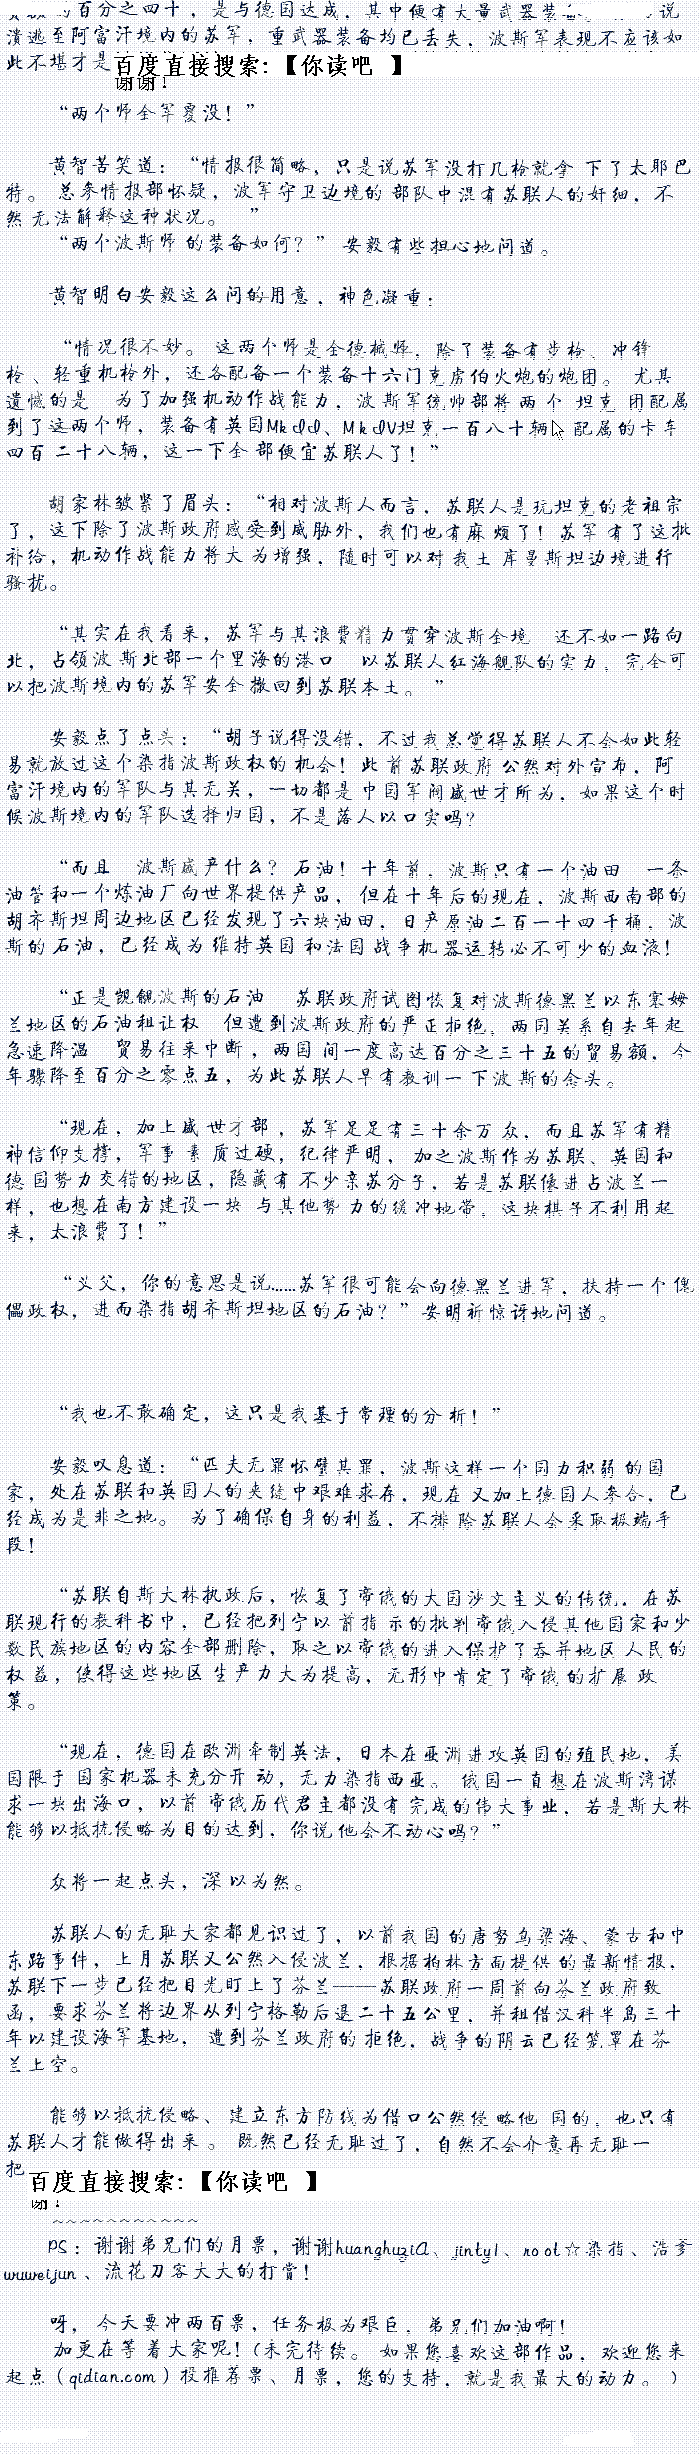 的百分之四十，是与德国达成，其中便有大量武器装备 说
溃逃至阿富汗境内的苏军，重武器装备均已丢失，波斯军表现不应该如
此不堪才是
百度直接搜索:【你读吧 】
谢谢!
“两个师全军覆没！”
黄智苦笑道：“情报很简略，只是说苏军没打几枪就拿 下了太耶巴
特。 总参情报部怀疑，波军守卫边境的 部队中混有苏联人的奸细，不
然 无法解释这种状况。 ”
“两个波斯师 的装备如何？” 安毅有些担心地问道。
黄智明白安毅这么问的用意，神色凝重：
“情况很不妙。 这两个师是全德械师，除了装备有步枪、冲锋
枪、轻重机枪外，还各配备一个装备十六门克虏伯火炮的炮团。 尤其
遗憾的是 为了加强机动作战能力，波 斯军统帅部将 两 个 坦克 团配属
到了这两个师，装备有英国MkⅡ、MkⅣ坦克一百八十辆 配属的卡车
四百 二十八辆，这一下全 部便宜苏联人了！”
胡家林皱紧了眉头：“相对波斯人而言，苏联人是玩坦克的老祖宗
了，这下除了波斯政府感受到威胁外，我们也有麻 烦了！苏军 有了这批
补给，机动作战能力将大 为增强，随时可以对 我土 库曼斯坦边境进行
骚扰。
“其实在我看来，苏军与其浪费精力贯穿波斯全境 还不如一路向
北，占领波 斯北部一个里海的港口 以苏联人红海舰队的实力，完全可
以把波斯境内的苏军安全撤回到苏联本土。”
安毅点了点头：“胡子说得没错，不过我总觉得苏联人不会如此轻
易就放过这个染指波斯政权的 机会！此 前苏联政府 公然对外宣布，阿
富汗境内的军队与其无关，一切都是 中国军阀盛世才所为，如果这个时
候波斯境内的军队选择归国，不是落人以口实吗？
“而且 波斯盛产什么？ 石油！十年前，波斯只有一个油田 一条
油管和一个炼油厂向世界提供产品，但在十年后的现在，波斯西南部的
胡齐斯坦周边地区已经发现了六块油田，日产原油二百一十四千桶，波
斯的 石油，已经 成为 维持英国 和法国 战争机器运转必不可少的血液！
“正是觊觎波斯的石油 苏联政府试图恢复对波斯德黑兰以东塞姆
兰地区的石油租让权 但遭到波斯政府的严正拒绝，两国关系自去年起
急速降温 贸易往来中断 ，两国 间一度高达百分之三十五的贸易额，今
年骤降至百分之零点五，为此苏联人早有教训一 下波 斯的念头。
“现在，加上盛 世才部 ，苏军足足有三十余万 众，而且苏军有精
神信仰支撑，军事 素 质过硬，纪律严明， 加之波斯作为苏联、英国和
德 国势力交错的地区，隐藏有 不少亲苏分子，若是苏联像进占波兰一
样，也想在南方建设一块 与其他势 力的缓冲地带，这块棋子不利用起
来，太浪费了！”
“义父，你的意思是说……苏军很可能会向德黑兰进军，扶持一个 傀
儡政权，进而染指胡齐斯坦地区的石油？”安明祈惊讶地问道。
“我也不敢确定，这只是我基于常理的分 析！”
安毅叹息道：“匹夫无罪怀璧其罪，波斯这样一个国力积弱 的国
家，处在苏联和英国人的夹缝中艰难求存，现在 又加上德国人参合，已
经成为是非之地。 为了确保自身的利益，不排 除苏联人会采取极端手
段！
“苏联自斯大林执政后，恢复了帝俄的大国沙文主义的传统，在苏
联现行的教科书中，已经把列宁以前指 示的批判帝俄入侵其他国家和少
数民族地区的内容全部删除，取之以帝俄的进入保护了吞并地区 人民的
权 益，使得这些地区 生产力大为提高，无形中肯定了帝俄 的扩展 政
策。
“现在，德国在欧洲牵制英法，日本在亚洲进攻英国的殖民地，美
国限于 国家机器未充分开 动，无力染指西亚。 俄国一直想在波斯湾谋
求一块出海口，以前 帝俄历代君主都没有完成的伟大事业，若是斯大林
能够以抵抗侵略为目的达到，你说他会不动心吗？”
众将一起点头，深以为然。
苏联人的无耻大家都见识过了，以前我国 的唐努乌梁海、蒙古和中
东路事件，上月苏联又公然入侵波兰，根据柏林方面提供 的最新情报，
苏联下一步已经把目光盯上了芬兰——苏联政府一周前向芬兰政府致
函，要求芬兰将边界从列宁格勒后退二十五公里，并租借汉科半岛三十
年以建设海军基地， 遭到芬兰政府的 拒绝，战争的阴云已经笼罩在芬
兰上空。
能够以抵抗侵略、 建立东方防线为借口公然侵略他 国的，也只有
苏联人才能做得出来 。 既然已经无耻过了，自然不会介意再无耻一
把
百度直接搜索:【你读吧 】
谢!
~~~~~~~~~~~
PS：谢谢弟兄们的月票，谢谢huanghuziA、jinty1、root☆染指、浩爹
wuweijun 、流花刀客大大的打赏！
呀，今天要冲两百票，任务极为艰巨，弟兄们加油啊！
加更在等 着大家呢！（未完待续。 如果您喜欢这部作品，欢迎您来
起点（qidian.com）投推荐票、月票，您的支持，就是我最大的动力。 ）